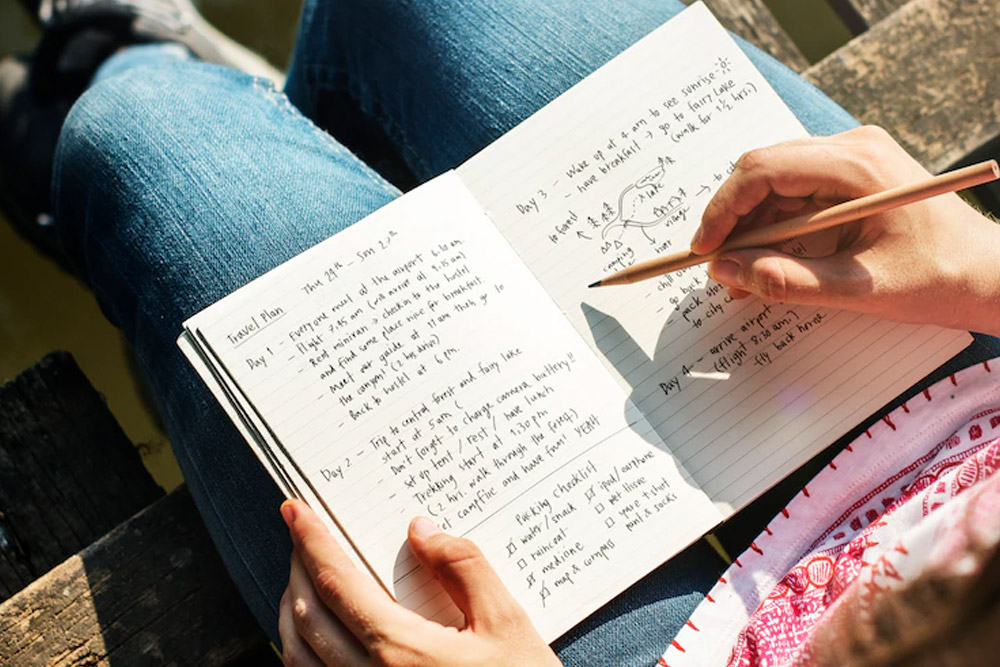 Travel Plan Thu 24th - Sun 27th
Day 1 - Everyone meet at the airport 6.30 am.
- Flight 7.45 am (will arrive at 9.15 am)
- Rent minivan → checkin to the hostel
and find some place nice for breakfast.
- Meet our guide at 11am then go to
the canyon! (2 hrs. drive)
- Back to hostel at 6 pm.
Day 2 - Trip to central forest and fairy lake
start at 5am (
Don't forget to charge camera battery!!
- set up tent / rest / have lunch
- Trekking start at 1.30 pm
(2 hr. walk through the forest)
campfire and have fun! YEAH
Packing checklist
water / snack
raincoat
medicine
map & compass
ipod / earphone
wet tissue
spare t-shirt
pant & socks
Day 3 - Wake up at 4 am to see sunrise
- have breakfast → go to fairy Lake
(walk for 1 1/2 hrs.)
to forest
Lake
→ to ci
village
camping
- chill ou
- go back
pack st
to city
Day 4 - arrive airport
(flight 8.30 am.)
fly back home